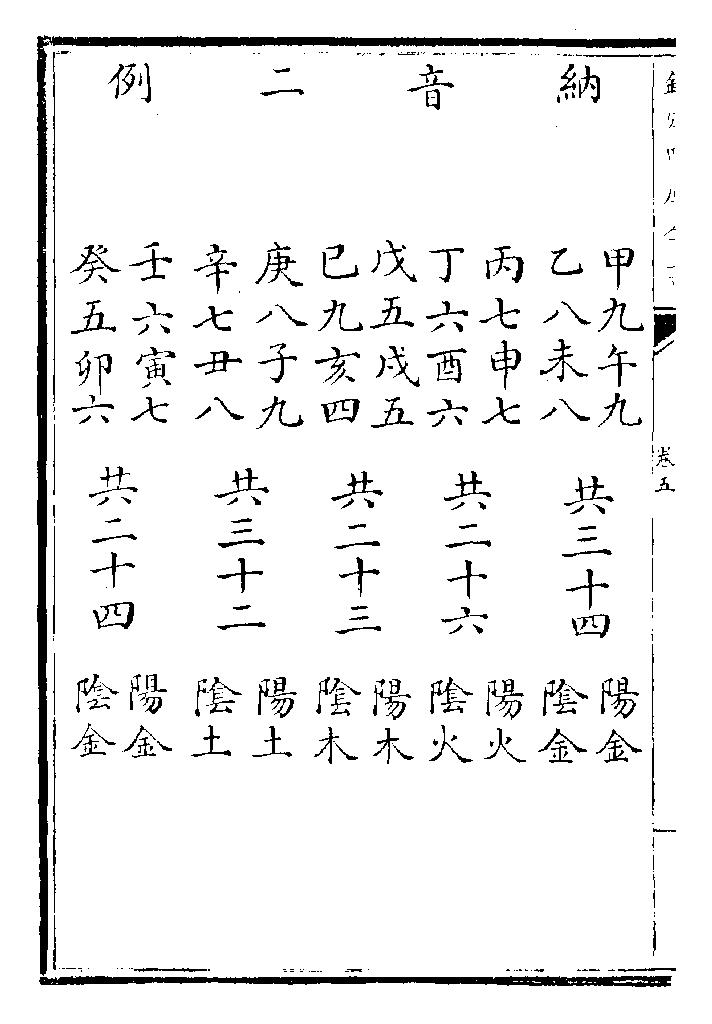 卷五
納音二例
甲九午九
乙八未八
共三十四
陽金
陰金
丙七申七
丁六酉六
共二十六
陽火
陰火
戊五戌五
已九亥四
共二十三
陽木
陰木
庚八子九
辛七丑八
共三十二
陽土
陰土
壬六寅七
癸五卯六
共二十四
陽金
陰金